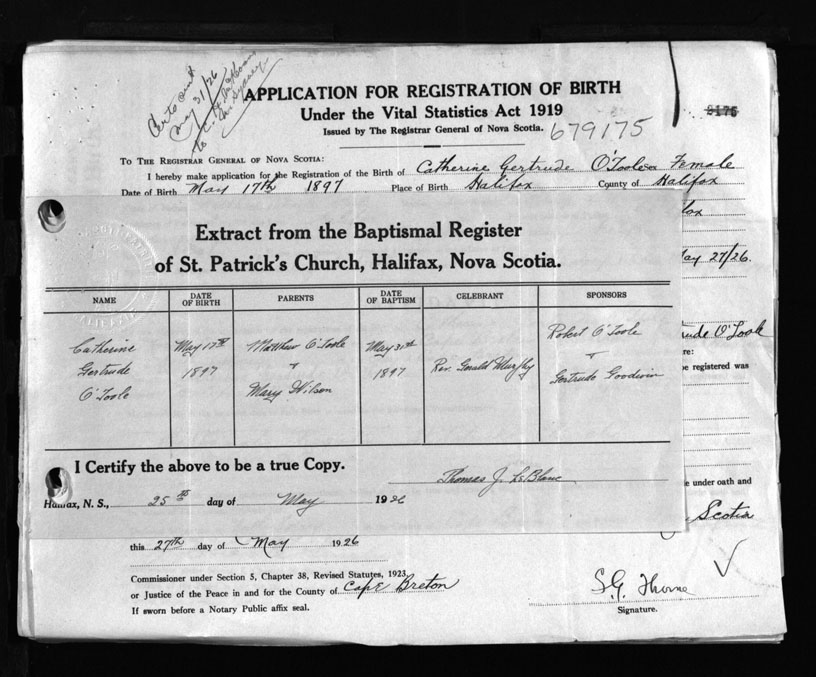 Cert sent
May 31/26
to C.
in Sydney
APPLICATION FOR REGISTRATION OF BIRTH
Under the Vital Statistics Act 1919
Issued by The Registrar General of Nova Scotia.
679175
2175
TO THE REGISTRAR GENERAL OF NOVA SCOTIA:
I hereby make application for the Registration of the Birth of Catherine Gertrude O'Toole Female
Date of Birth May 17th 1897 Place of Birth Halifax County of Halifax
fax
May 27/26.
rude O'Toole
re:
be registered was
Extract from the Baptismal Register
of St. Patrick's Church, Halifax, Nova Scotia.
NAME DATE OF BIRTH PARENTS DATE OF BAPTISM CELEBRANT SPONSORS
Catherine May 17th Matthew O'Toole May 31st Robert O'Toole
Gertrude 1897 " 1897 Rev. Gerald Murphy "
O'Toole Mary Wilson Gertrude Goodwin
I Certify the above to be a true Copy.
Thomas J. LeBlanc
Halifax, N. S., 25th day of May 1926
e under oath and
Scotia
this 27th day of May 1926
Commissioner under Section 5, Chapter 38, Revised Statutes, 1923,
or Justice of the Peace in and for the County of Cape Breton
If sworn before a Notary Public affix seal.
S.G. Thorne
Signature.